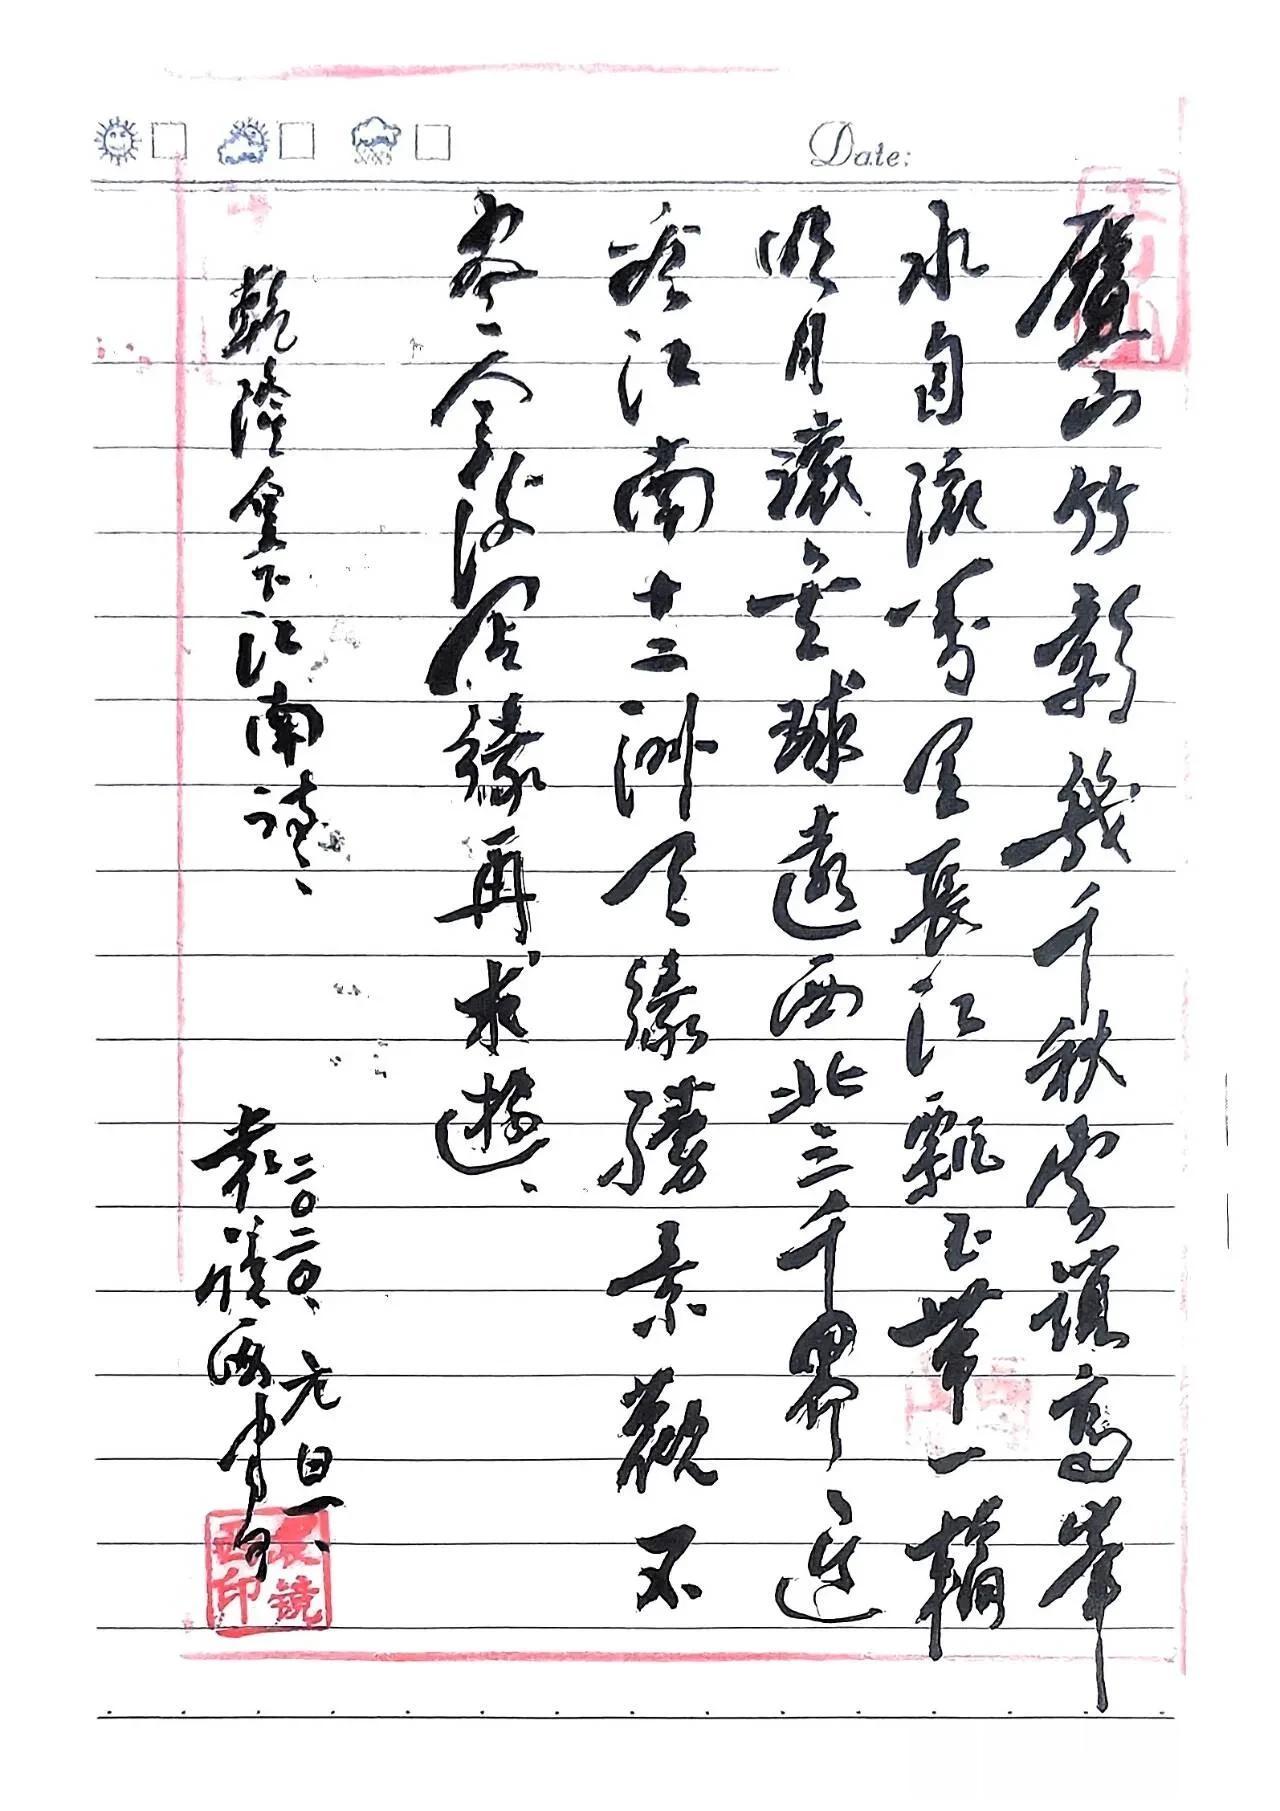 廬山竹影幾千秋雲鎖高峯
水自流萬里長江飄玉帶一輪
明月滾金球遠西北三千界近
江南十二洲天緣勝景觀不
盡緣再来遊
乾隆皇下江南詩
二〇二〇、元旦
袁鏡西書
袁鏡西印
Date: